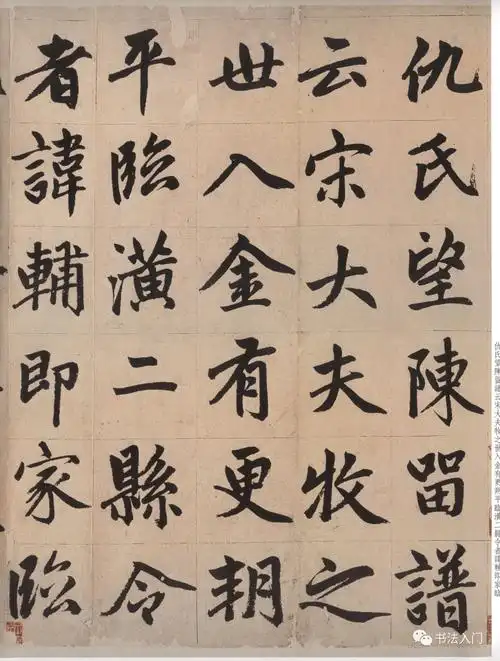 仇氏望陳留譜
云宋大夫牧之
世入金有更朔
平臨潢二縣令
者諱輔即家臨
仇氏望陳留譜云宋大夫牧之世入金有更朔平臨潢二縣令者諱輔即家臨
书法入门